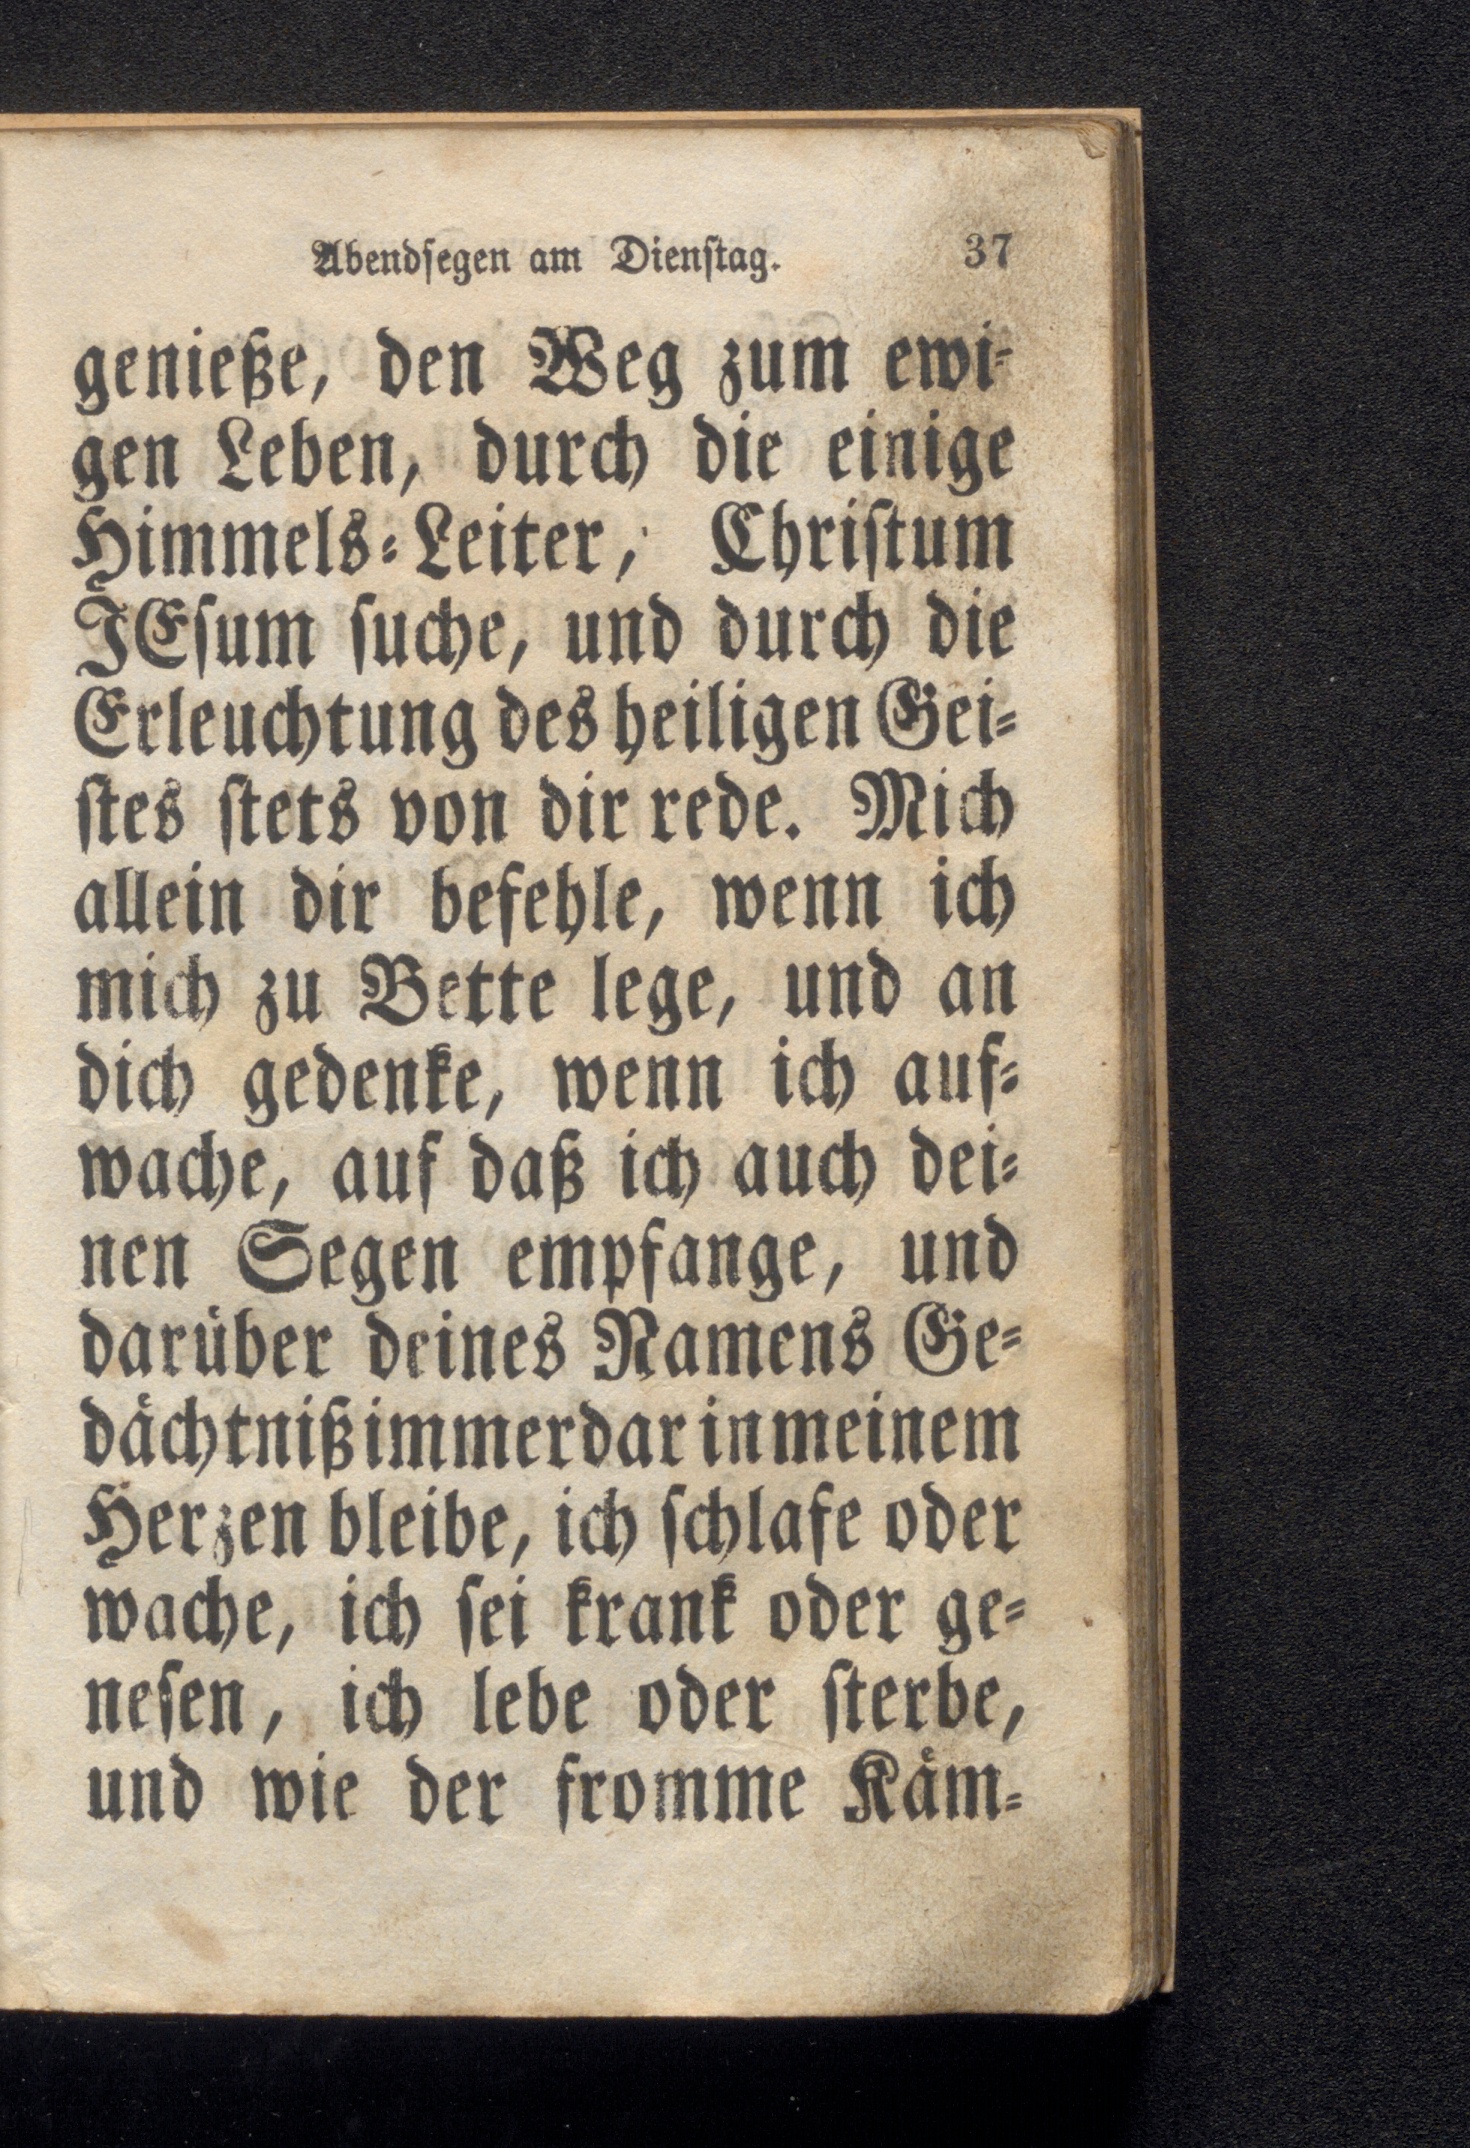 Abendſegen am Dienſtag. 37
genieße, den Weg zum ewi⸗
gen Leben, durch die einige
Himmels⸗Leiter, Chriſtum
JEſum ſuche, und durch die
Erleuchtung des heiligen Gei⸗
ſtes ſtets von dir rede. Mich
allein dir befehle, wenn ich
mich zu Bette lege, und an
dich gedenke, wenn ich auf⸗
wache, auf daß ich auch dei⸗
nen Segen empfange, und
darüber deines Namens Ge⸗
dächtniß immerdar in meinem
Herzen bleibe, ich ſchlafe oder
wache, ich ſei krank oder ge⸗
neſen, ich lebe oder ſterbe,
und wie der fromme Käm⸗